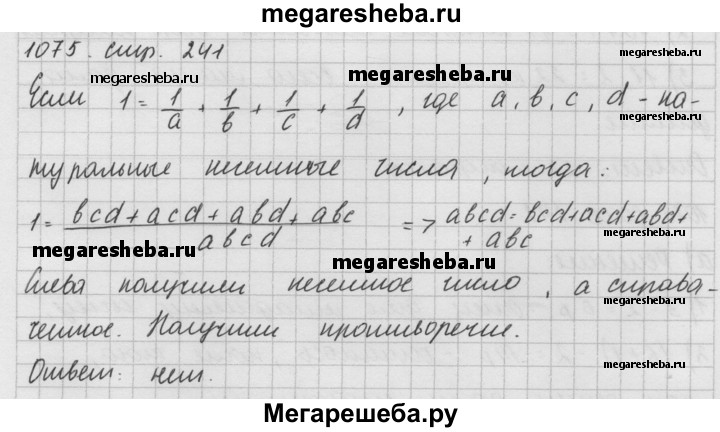 megaresheba.ru
1075. стр. 241
megaresheba.ru
megaresheba.ru
megaresheba.ru
Если 1 = 1/a + 1/b + 1/c + 1/d, где a, b, c, d - на-
megaresheba.ru
туральные нечетные числа, тогда:
1 = bcd + acd + abd + abc / abcd => abcd = bcd + acd + abd +
+ abc
megaresheba.ru
megaresheba.ru
megaresheba.ru
Слева получили нечетное число, а справа -
четное. Получили противоречие.
megaresheba.ru
Ответ: нет.
megaresheba.ru
Мегарешеба.ру